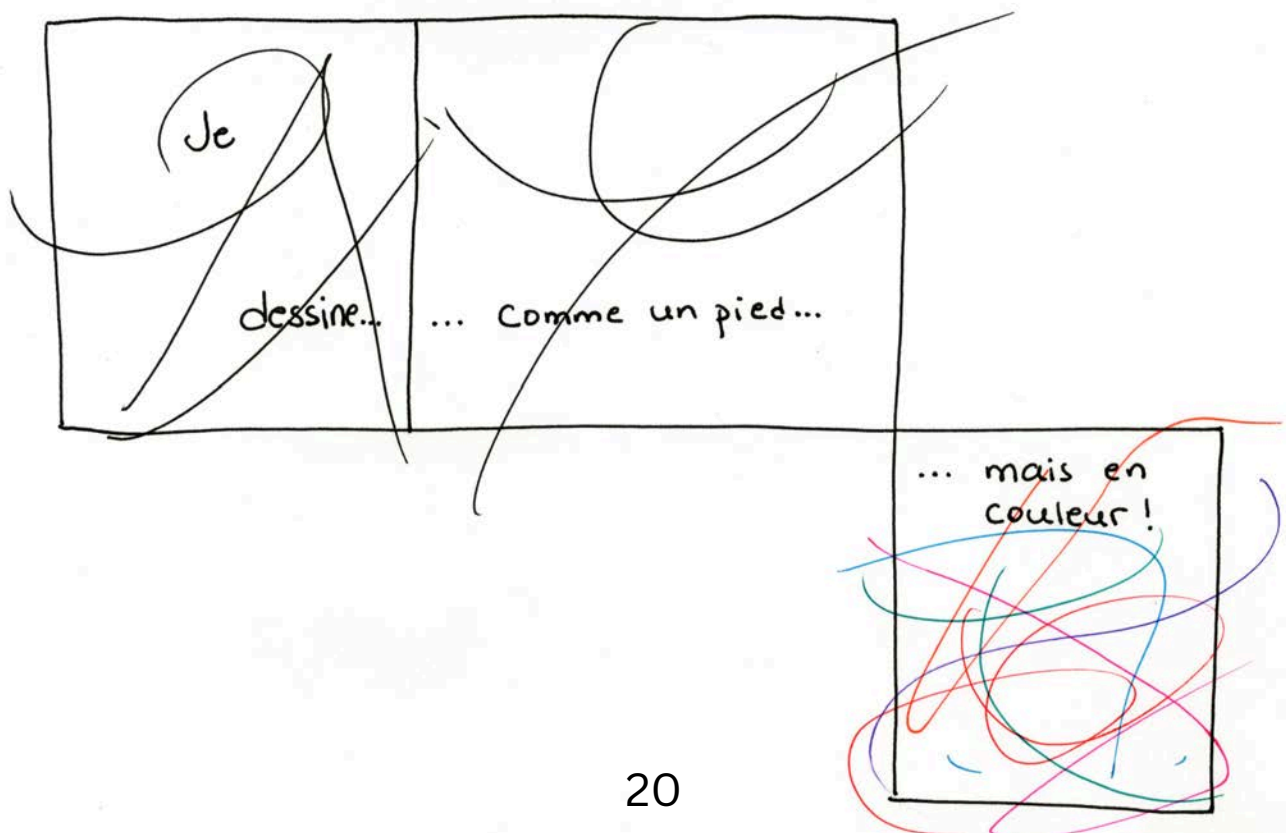 Je
dessine...
... comme un pied...
... mais en
couleur !
20